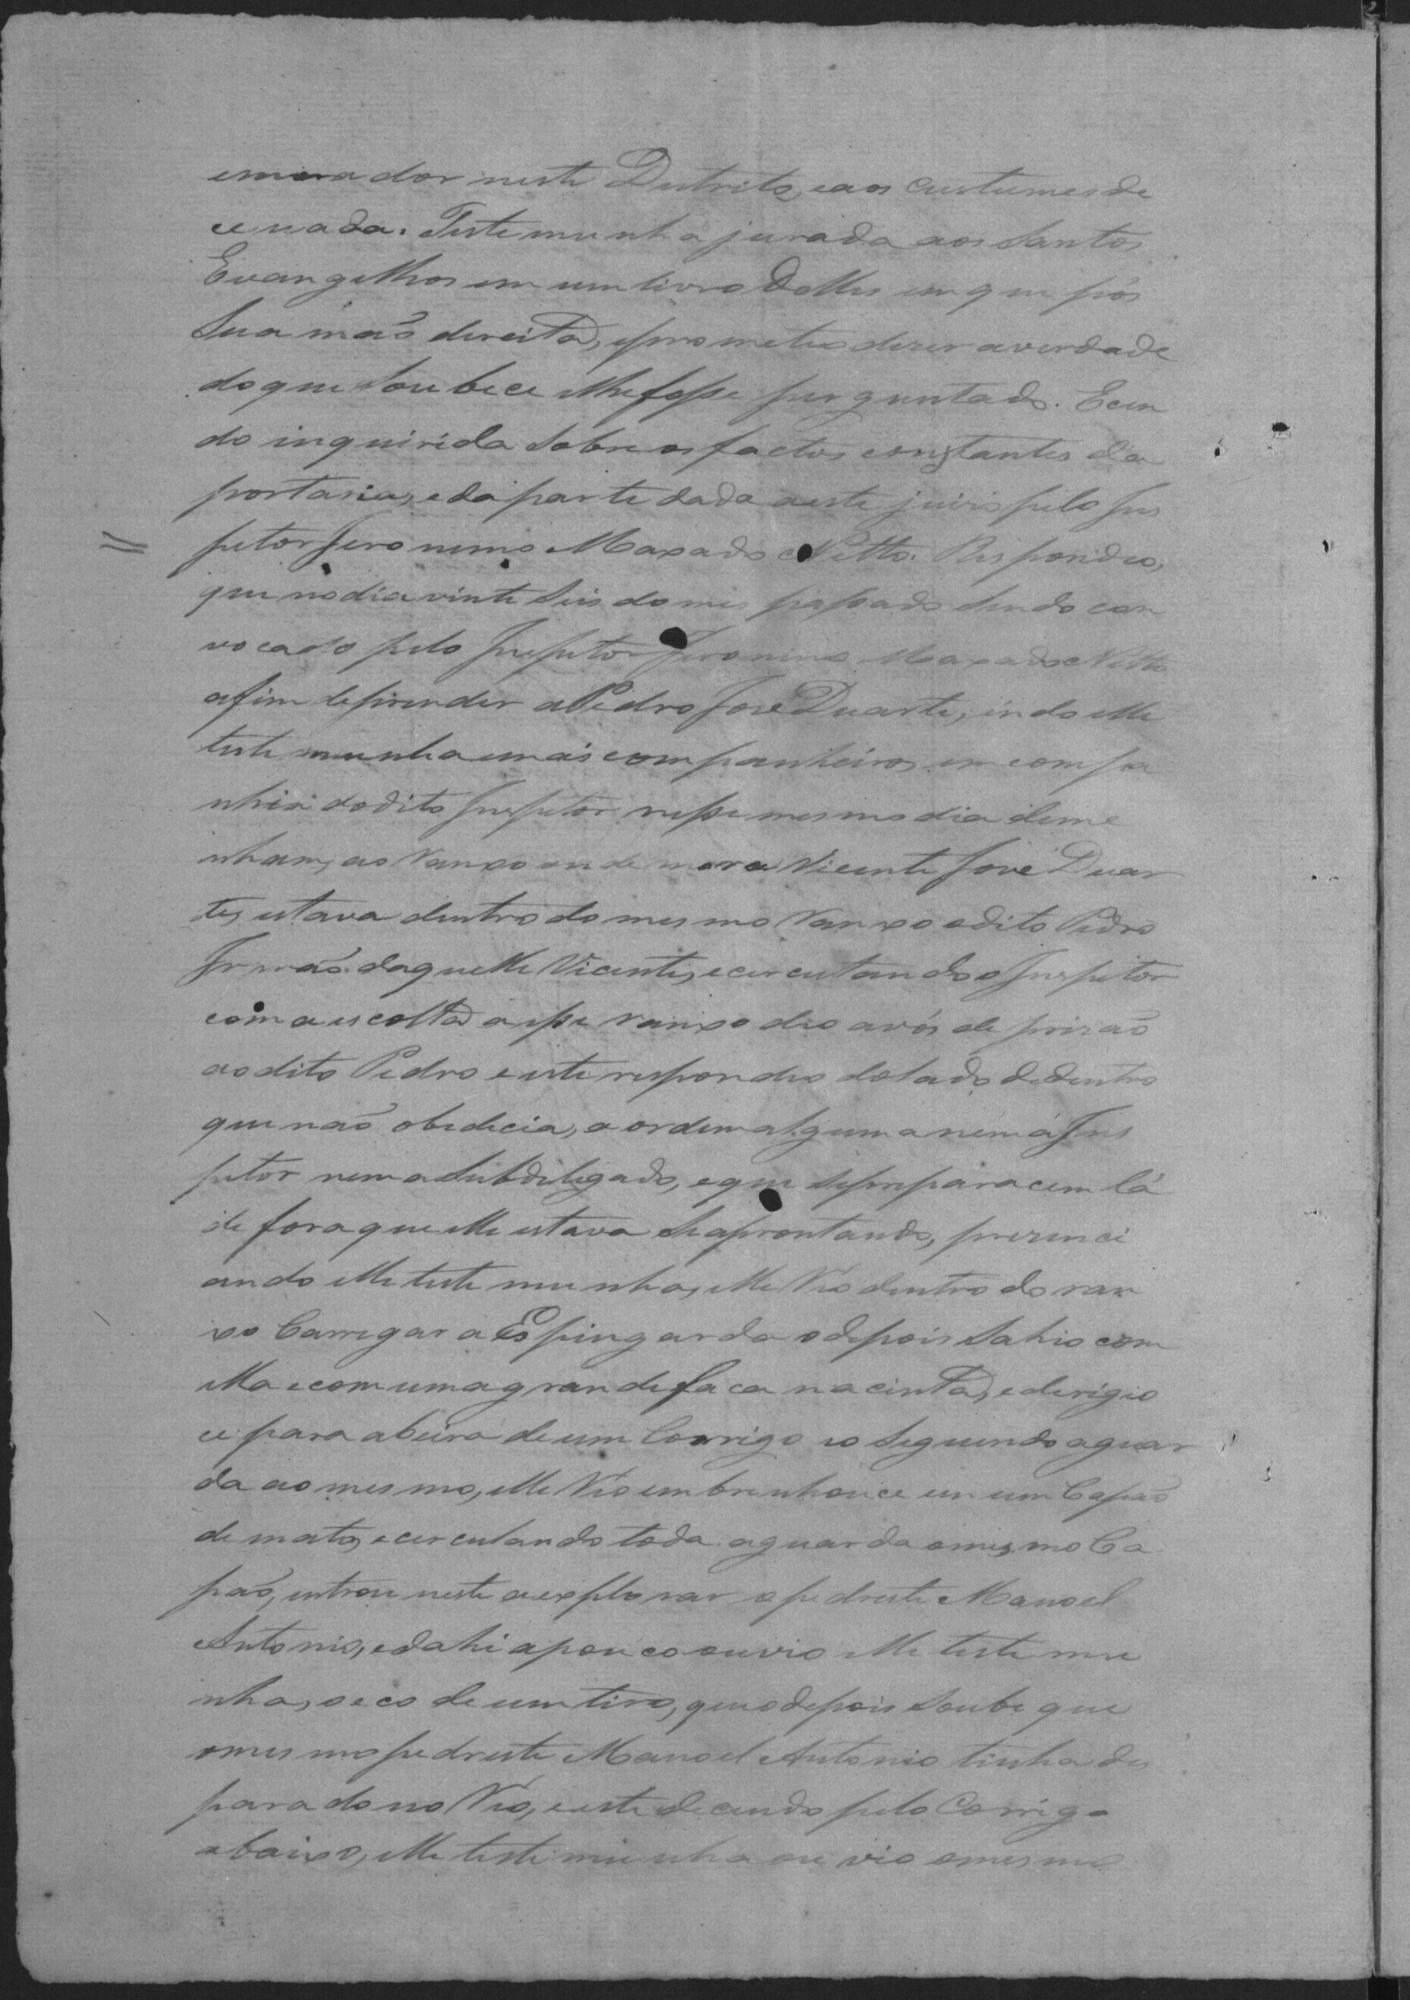 emorador neste Destrito, eaos custumes de
ce nada. Testemunha jurada aos Santos
Evangelhos em um livro delles em que pôs
Sua maõ direita, eprometeo dizer averdade
do que Soubece elhe fosse perguntado. Ecen
do inquirida Sobre os factos constantes da
portaria, eda parte dada aeste juiso pelo Ins
petor Jeronimo Maxado Netto. Respondeo,
que nodia vinte Seis do mes passado Sendo con
vocado pelo Inspetor Jeronimo Maxado Netto
afim deprender aPedro José Duarte, indo elle
testemunha emais companheiros em compa
nhia dodito Inspetor nesse mesmo dia
nham, ao ranxo onde mora Vicente José Duar
te, estava dentro do mesmo ranxo odito Pedro
Irmaõ daquelle Vicente, ecercutando o Inspetor
com a escolta aesse ranxo deo avós de prizaõ
aodito Pedro eeste respondeo dolado dedentro
que naõ obedecia, a ordem alguma nem a Ins
petor nem a Subdelegado, eque sepreparacem lá
de fora que elle estava Seaprontando, prezenci
ando elle testemunha, elle Réo dentro do ran
xo Carregar a Espingarda edepois Sahio com
ella ecom uma grande faca nacinta, ederigio
ce para abeira de um Corrigo eo Seguindo aguar
da ao mesmo, elle Réo embrenhouce em um Capaõ
de mato, ecerculando toda aguarda omesmo Ca
paõ, entrou neste aexplorar opedreste Manoel
Antonio, edahi apouco ouvio elle testemu
nha, oeco de um tiro, que odepois Soube que
omesmo pedreste Manoel Antonio tinha des
parado no Réo, eeste decendo pelo Corrigo
abaixo, elle testemunha ouvio omesmo